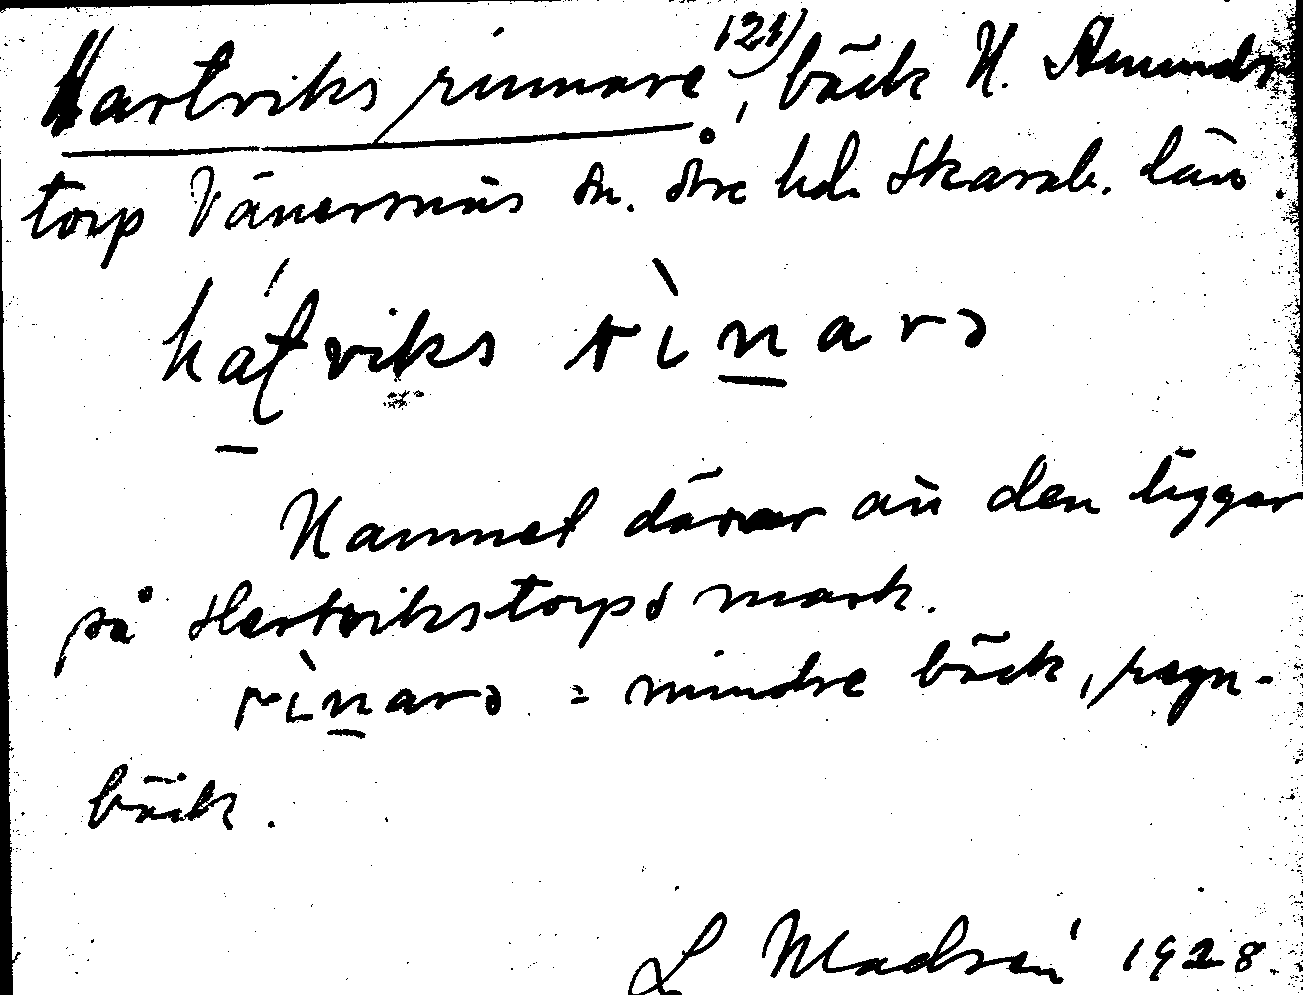 Hartviks rinnare 121), bäck N. Amunds
torp Vänersnäs sn. Åse hd. Skarab. län.
hát viks rìnarə
Namnet därav att den ligger
på Hertvikstorps mark.
rìnarə = mindre bäck, regn-
bäck.
L Madsén 1928.